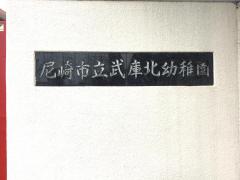 尼崎市立武庫北幼稚園